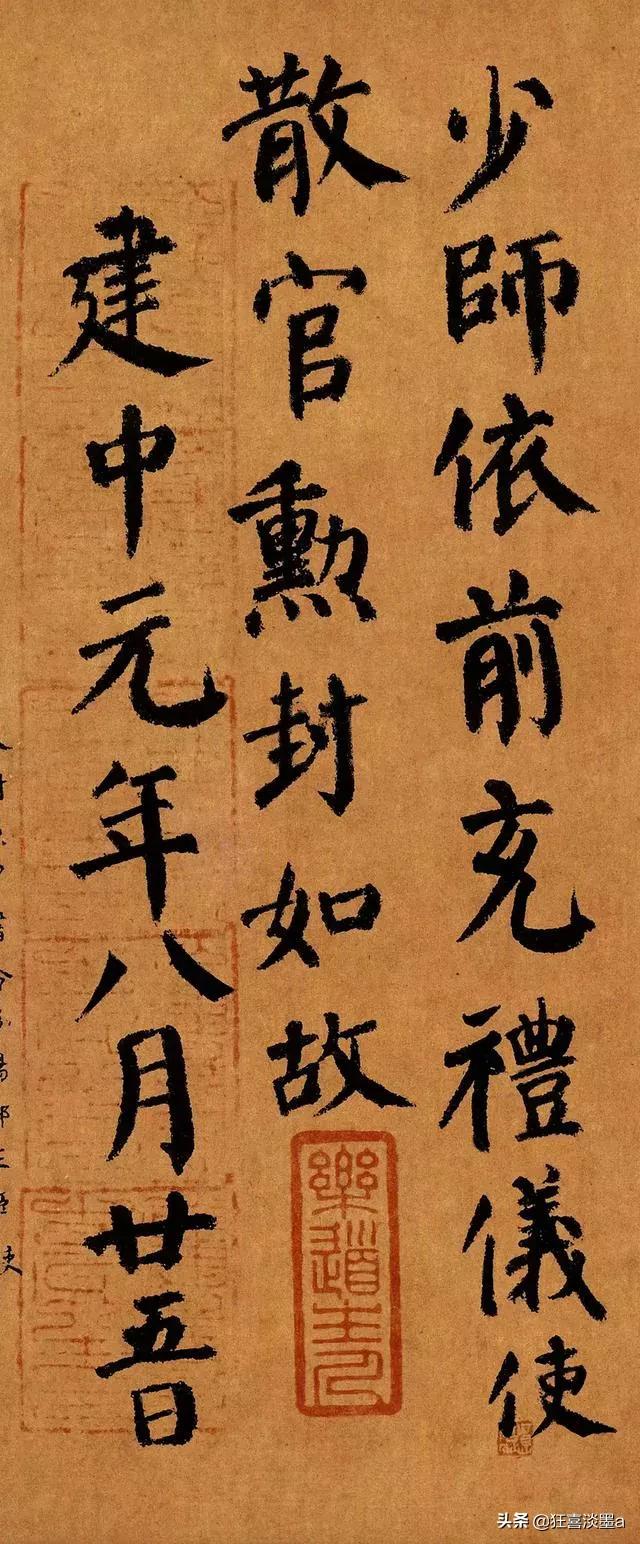 少師依前充禮儀使
散官勳封如故
建中元年八月廿五日
樂道主人
头条 @狂喜淡墨a